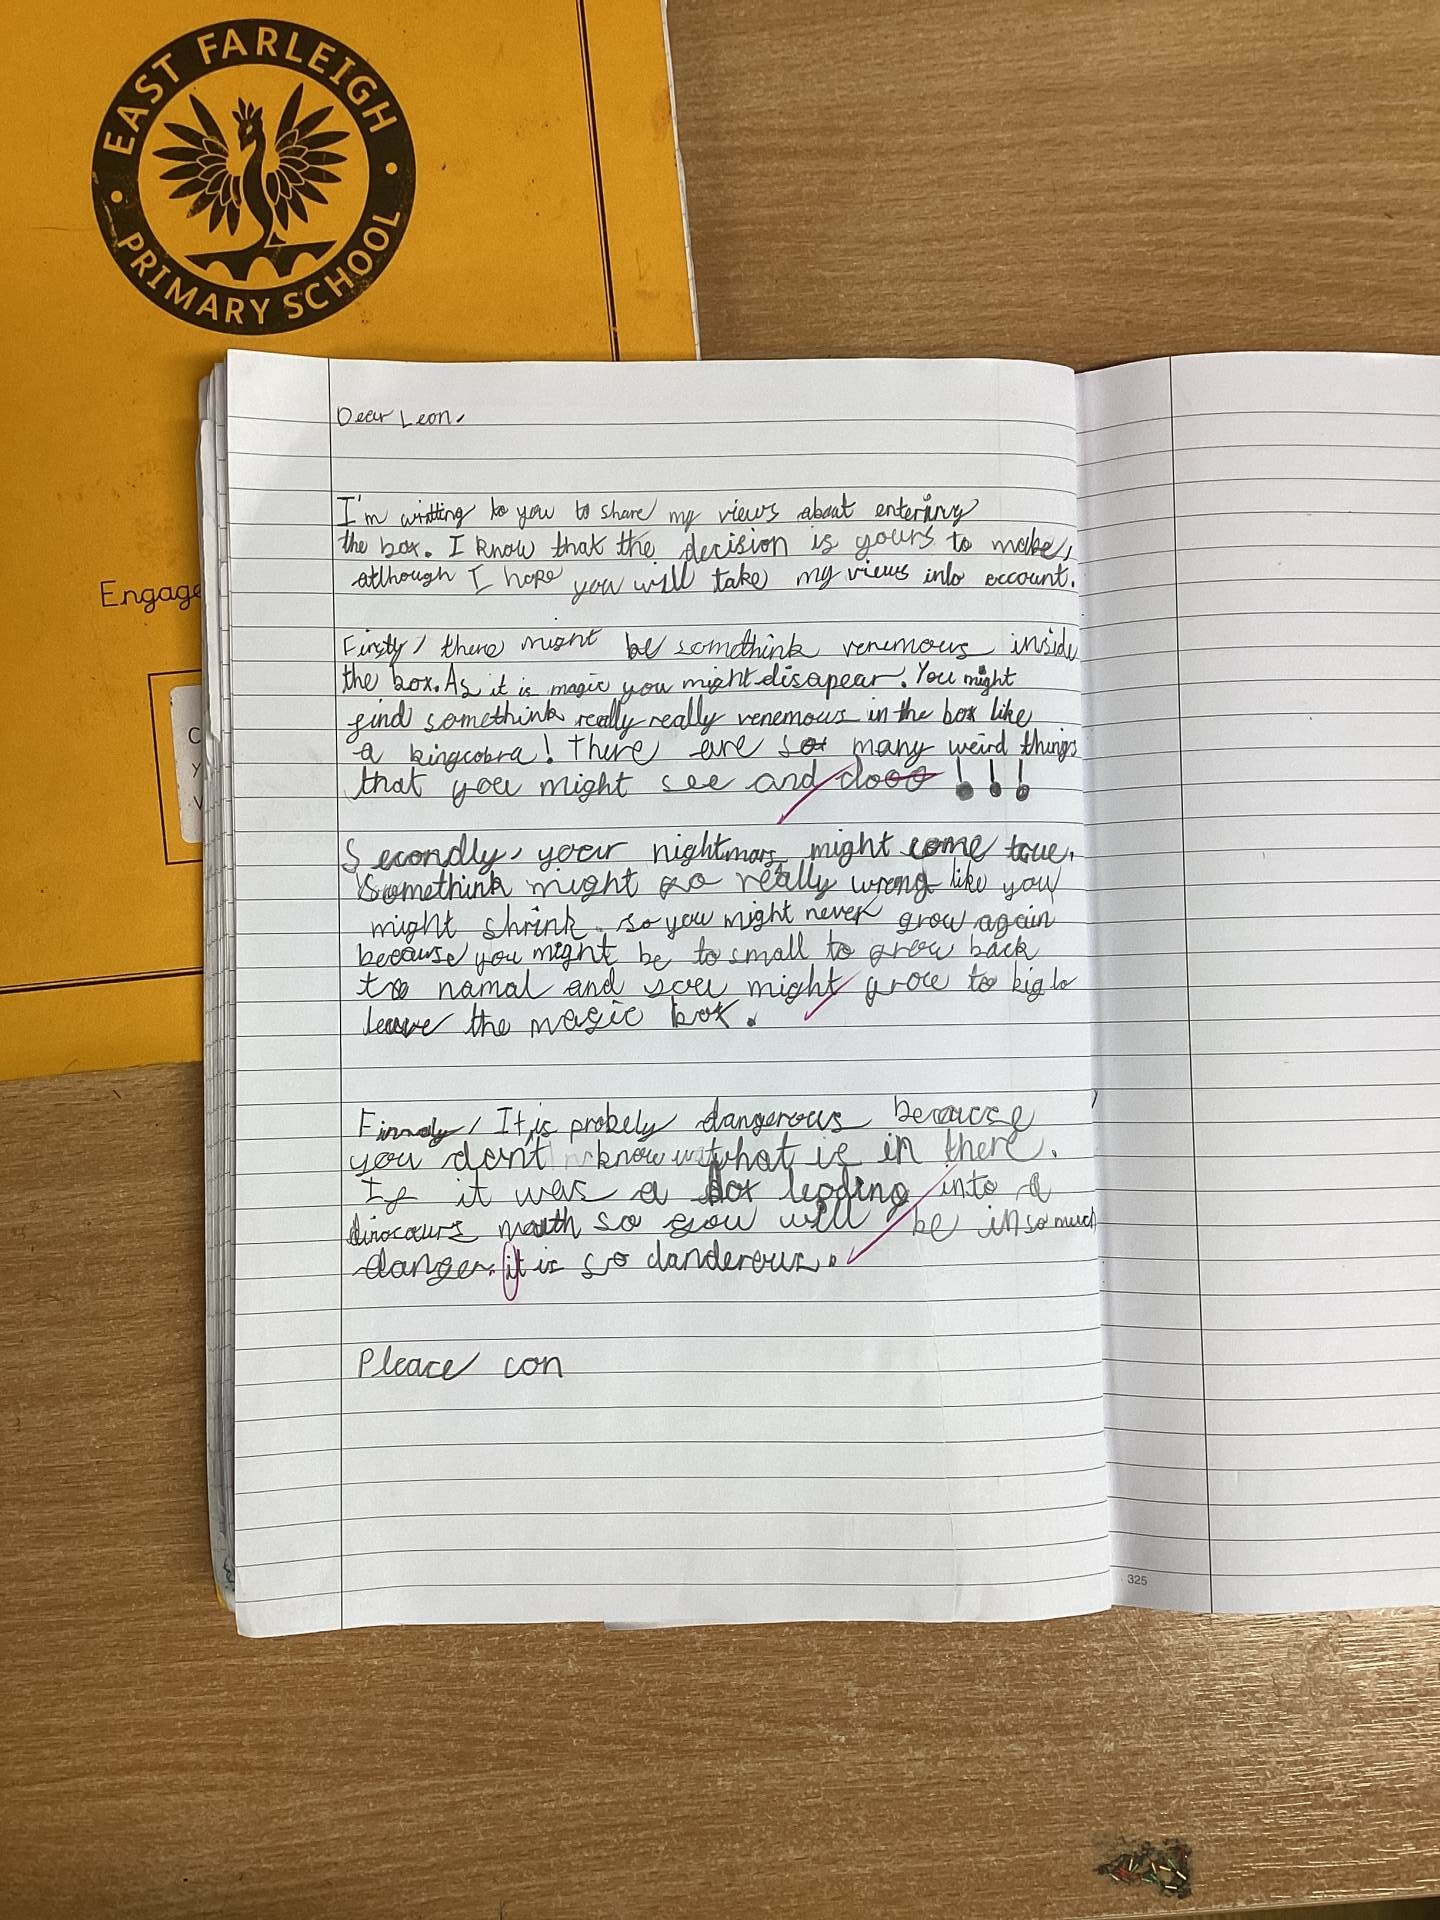 EAST FARLEIGH
PRIMARY SCHOOL
Engage
C
y
Dear Leon,
I'm writting to you to share my views about entering
the box. I know that the decision is yours to make,
atlhough I hope you will take my views into account.
Firstly, there might be somethink venemous inside
the box. As it is magic you might disapear. You might
find somethink really really venemous in the box like
a kingcobra! There are so many weird things
that you might see and dooo!!!
Secondly, your nightmars might come true.
Somethink might go really wrong like you
might shrink. so you might never grow again
because you might be to small to grow back
to namal and you might grow to big to
leave the magic box.
It is probely dangerous because
you don't know what is in there.
If it was a box leading into a
dinocaurs mouth so you will be in so much
danger. it is so danderous.
Pleace con
325